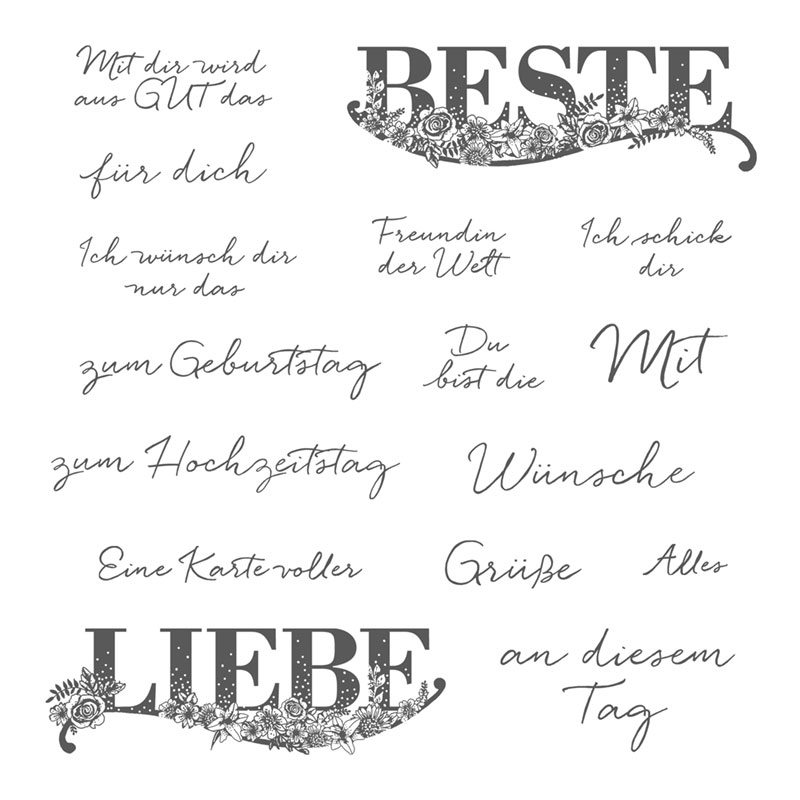 Mit dir wird
aus GUT das
BESTE
für dich
Ich wünsch dir
nur das
Freundin
der Welt
Ich schick
dir
zum Geburtstag
Du
bist die
Mit
zum Hochzeitstag
Wünsche
Eine Karte voller
Grüße
Alles
LIEBE
an diesem
Tag